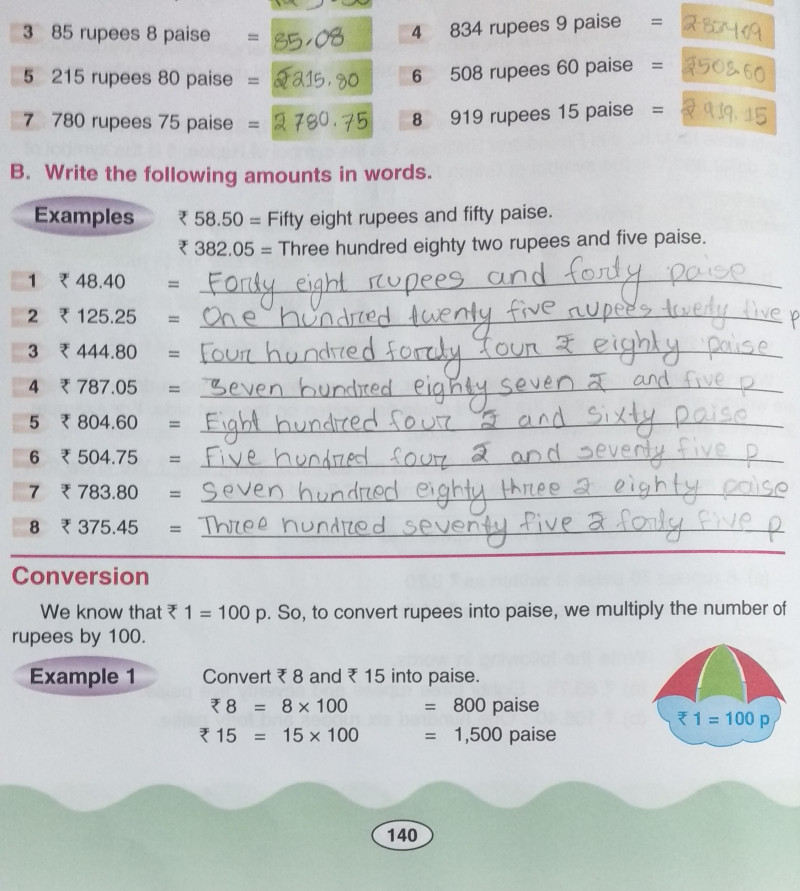 3 85 rupees 8 paise = 85.08 4 834 rupees 9 paise =
5 215 rupees 80 paise = ₹215.80 6 508 rupees 60 paise = ₹508.60
7 780 rupees 75 paise = ₹780.75 8 919 rupees 15 paise = ₹919.15
B. Write the following amounts in words.
Examples ₹ 58.50 = Fifty eight rupees and fifty paise.
₹ 382.05 = Three hundred eighty two rupees and five paise.
1 ₹ 48.40 = Forty eight rupees and forty paise
2 ₹ 125.25 = One hundred twenty five rupees twenty five p
3 ₹ 444.80 = Four hundred fordy four ₹ eighty paise
4 ₹ 787.05 = Seven hundred eighty seven ₹ and five p
5 ₹ 804.60 = Eight hundred four ₹ and sixty paise
6 ₹ 504.75 = Five hundred four ₹ and seventy five p
7 ₹ 783.80 = Seven hundred eighty three ₹ eighty paise
8 ₹ 375.45 = Three hundred seventy five ₹ forty five p
Conversion
We know that ₹ 1 = 100 p. So, to convert rupees into paise, we multiply the number of
rupees by 100.
Example 1 Convert ₹ 8 and ₹ 15 into paise.
₹ 8 = 8 × 100 = 800 paise
₹ 15 = 15 × 100 = 1,500 paise
₹ 1 = 100 p
140